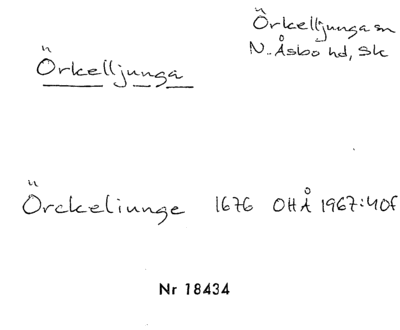 Örkelljunga sn
N. Åsbo hd, Sk
Örkelljunga
Örckeliunge 1676 OHÅ 1967:40f
Nr 18434